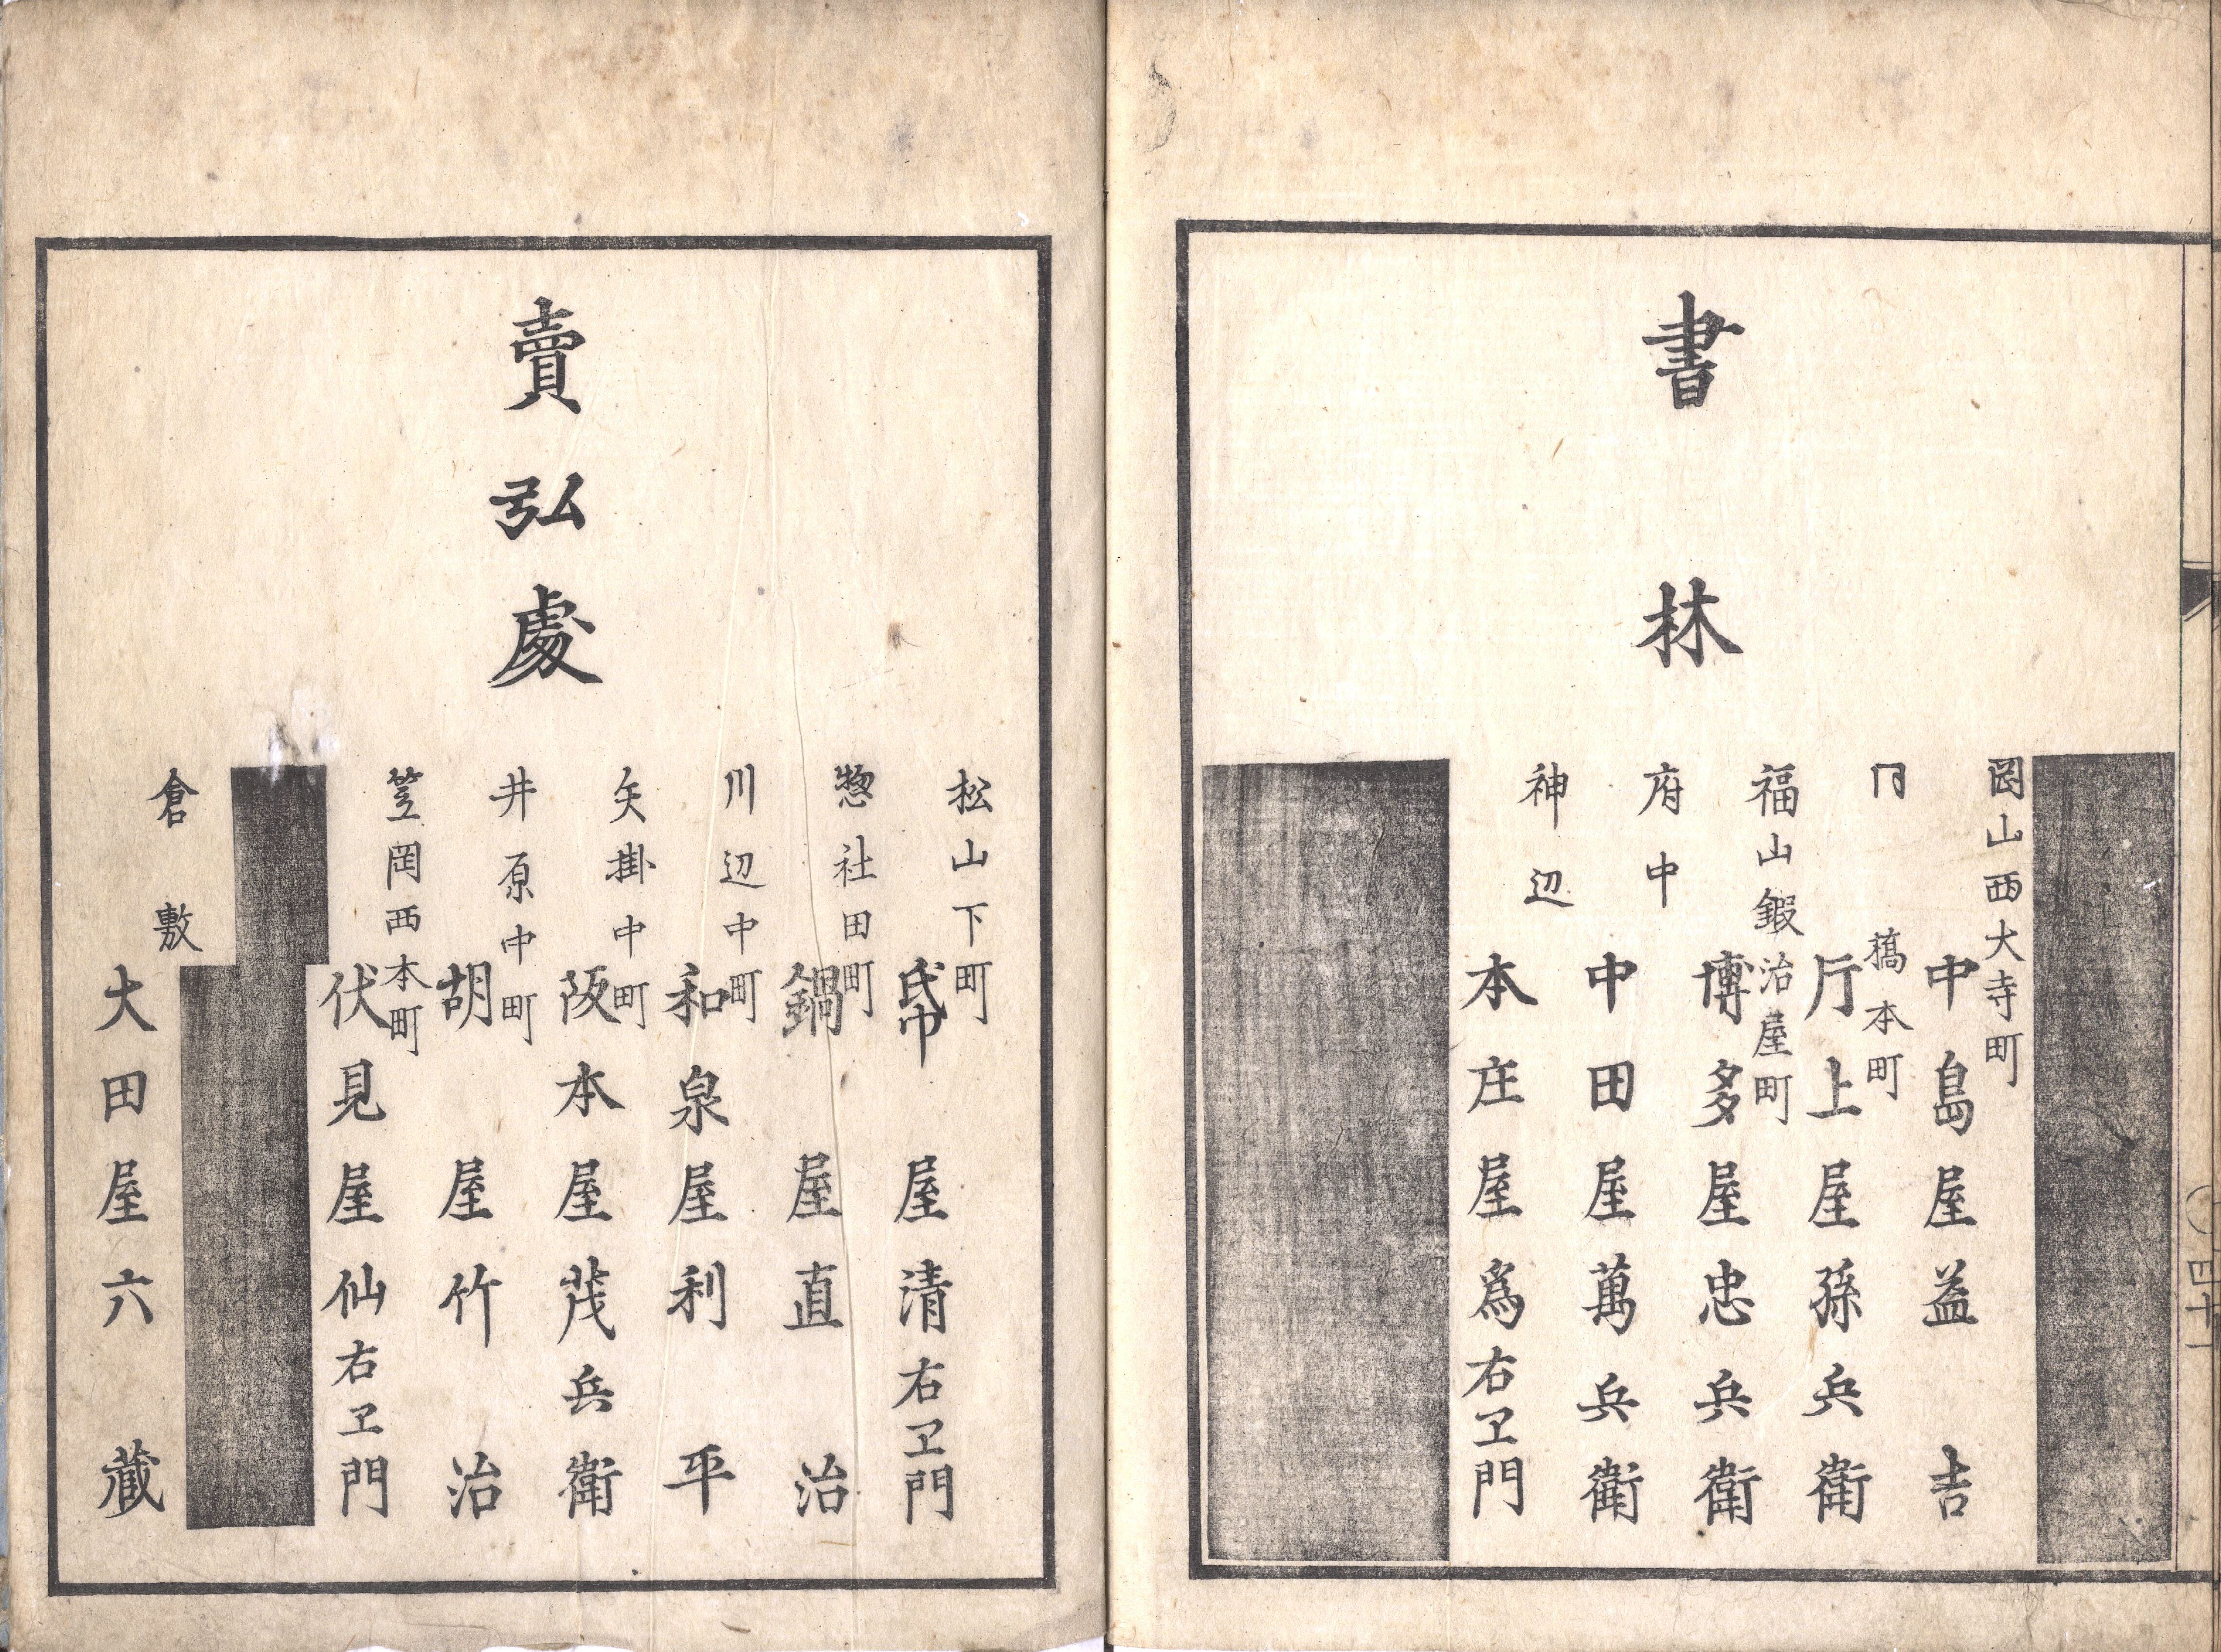 書林
岡山西大寺町
中島屋益吉
冂 橋本町
斤上屋孫兵衛
福山鍜治屋町
博多屋忠兵衛
府中
中田屋萬兵衛
神辺
本庄屋爲右ヱ門
四十一
賣弘處
松山下町
帋屋清右ヱ門
惣社田町
鍋屋直治
川辺中町
和泉屋利平
矢掛中町
阪本屋茂兵衛
井原中町
胡屋竹治
笠岡西本町
伏見屋仙右ヱ門
倉敷
大田屋六蔵